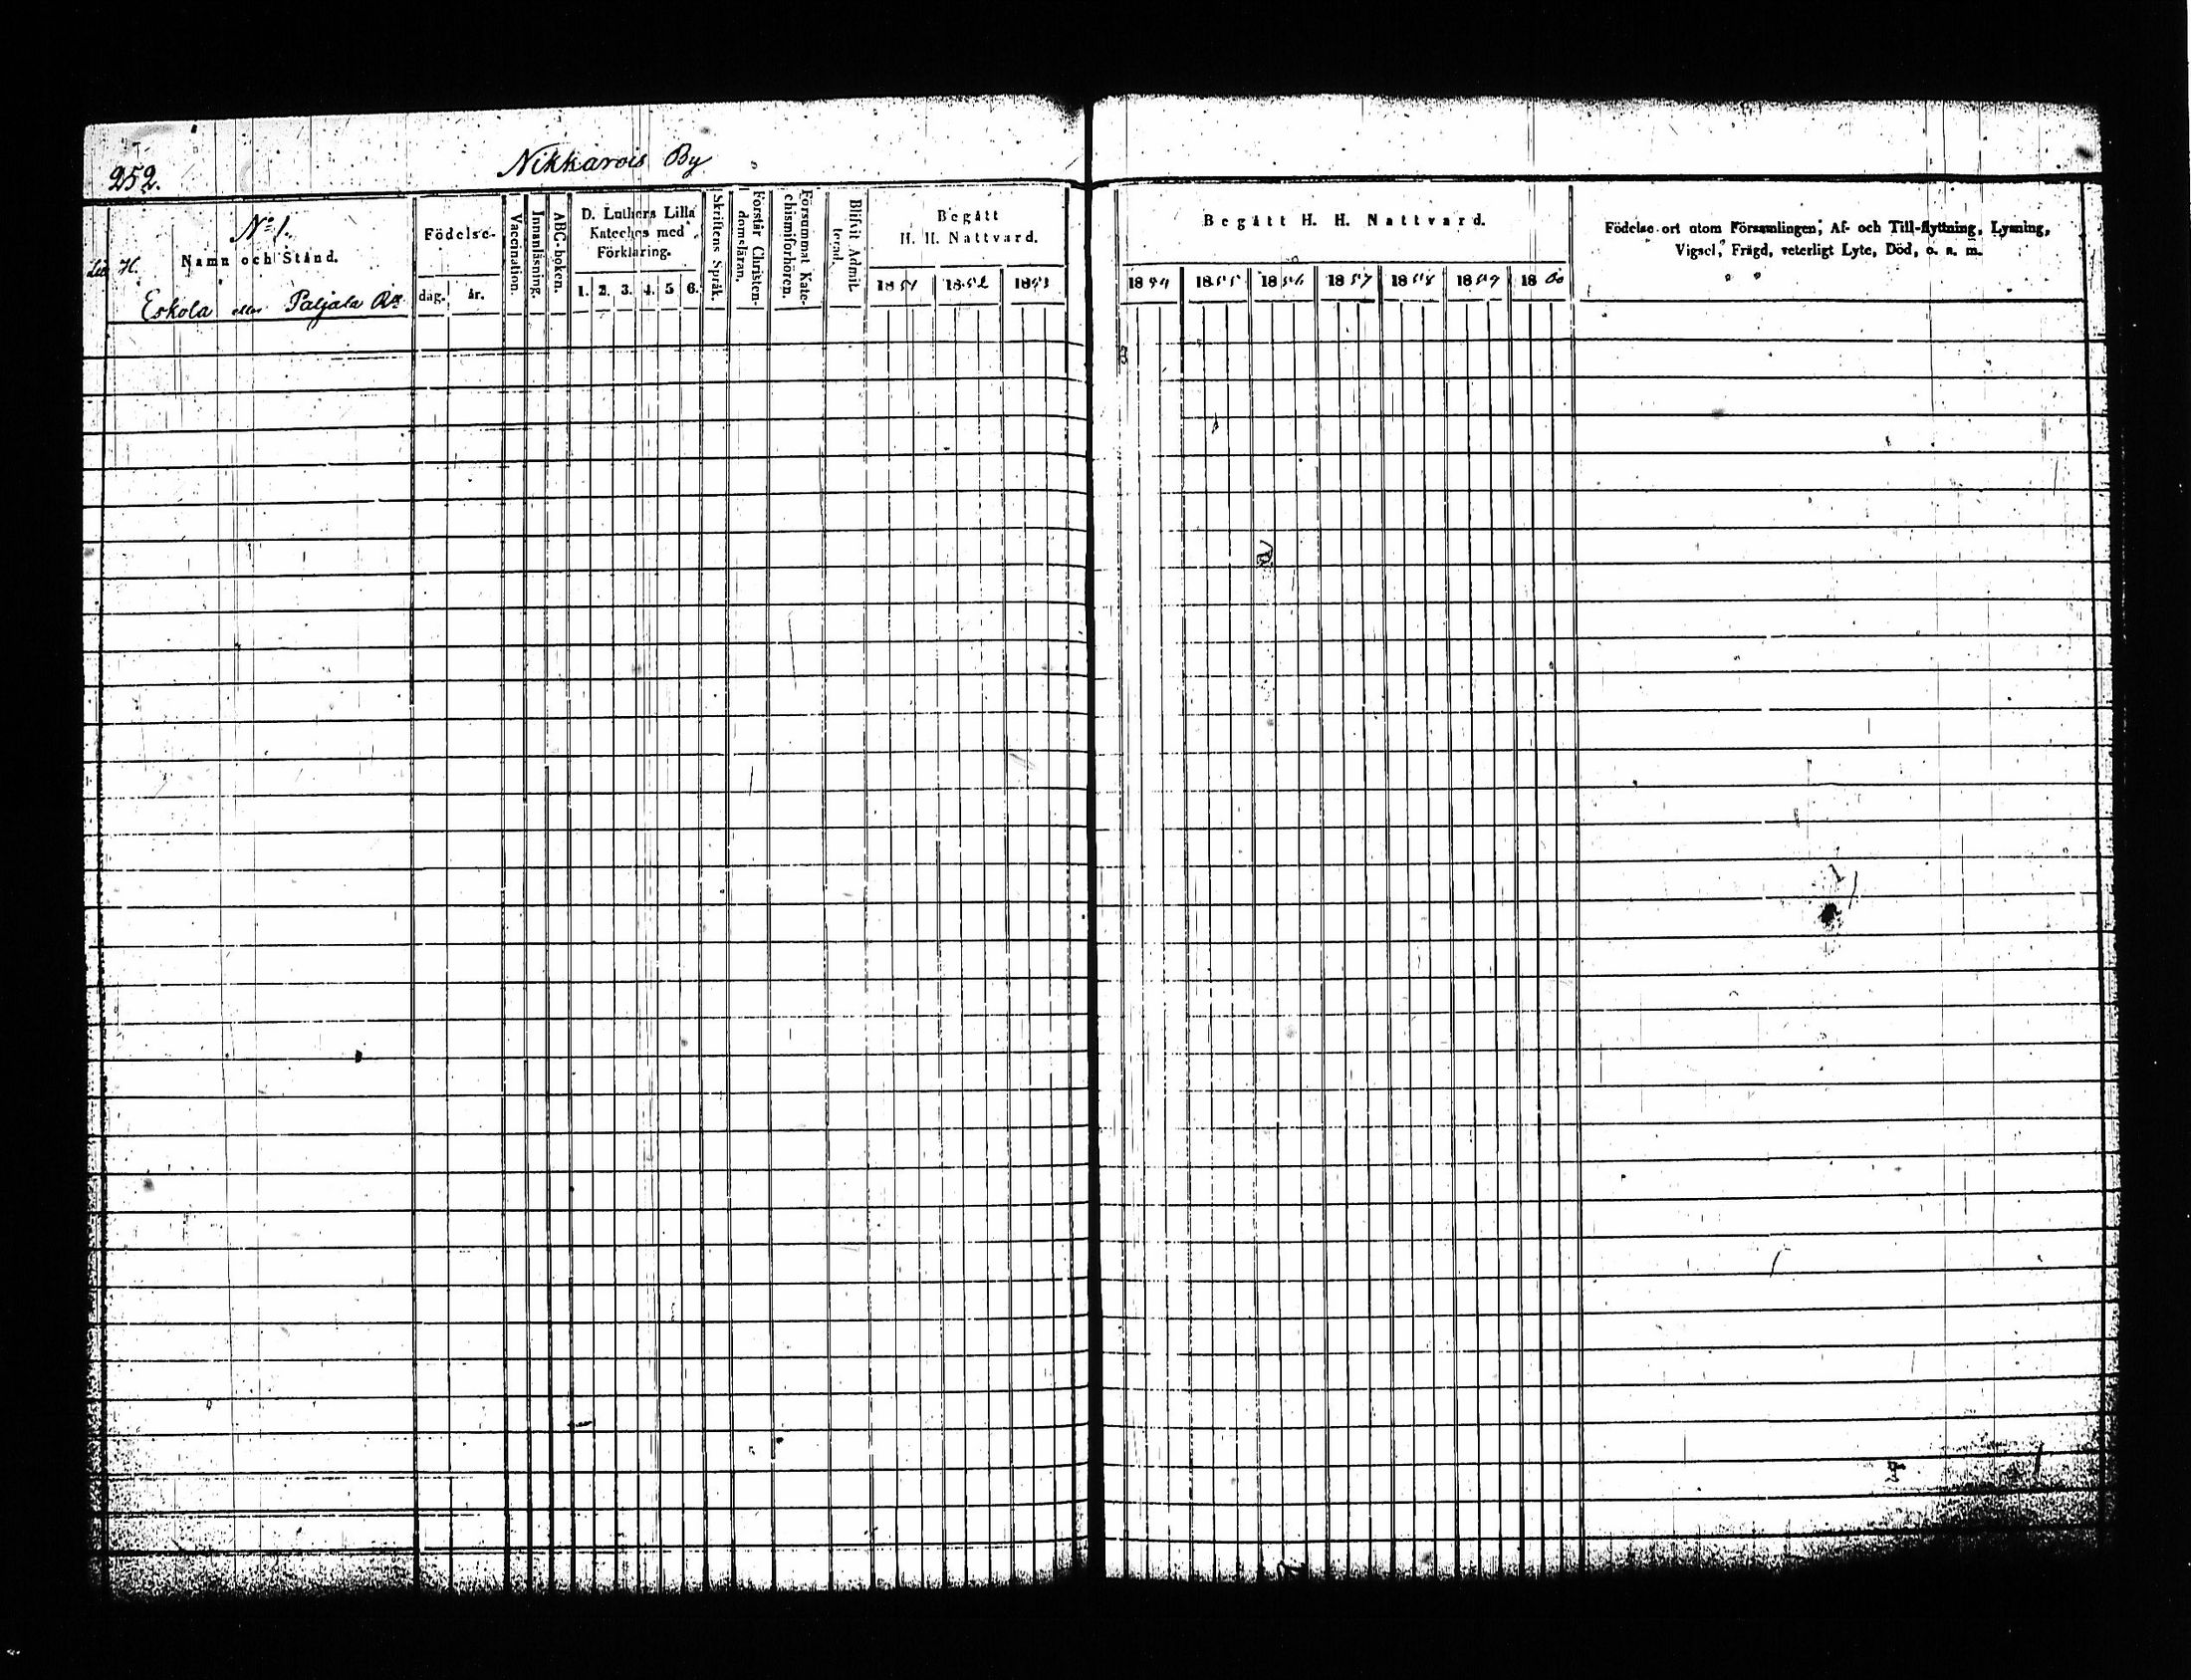 252.
Nikkarois By
No 1.
Namn och Stånd.
Eskola eller Paljala
Födelse-
dag.
år.
Vaccination.
Innanläsning.
ABC-boken.
D. Luthers Lilla
Kateches med
Förklaring.
1. 2. 3. 4. 5 6.
Skriftens Språk.
Förstår Christen-
domsläran.
Försummat Kate-
chismiförhören.
Blifvit Admit-
terad.
Begått
H. H. Nattvard.
1851 1852 1853
Begått H. H. Nattvard.
1854 1855 1856 1857 1858 1859 1860
Födelse-ort utom Församlingen, Af- och Till-flyttning, Lysning,
Vigsel, Frägd, veterligt Lyte, Död, o. s. m.